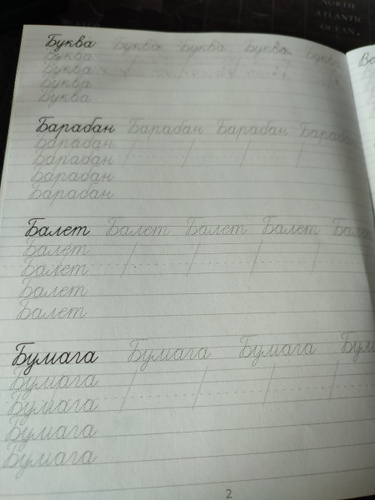 NORTH
ATLANTIC
OCEAN
Буква Буква Буква Буква Буква
Буква
Буква
Буква
Буква
Барабан Барабан Барабан Барабан
Барабан
Барабан
Барабан
Барабан
Балет Балет Балет Балет Балет
Балет
Балет
Балет
Балет
Бумага Бумага Бумага Бум
Бумага
Бумага
Бумага
Бумага
2